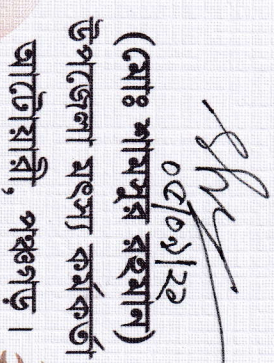 ০৫/০৯/২১
(মোঃ শামসুর রহমান)
উপজেলা মৎস্য কর্মকর্তা
আটোয়ারী, পঞ্চগড়।